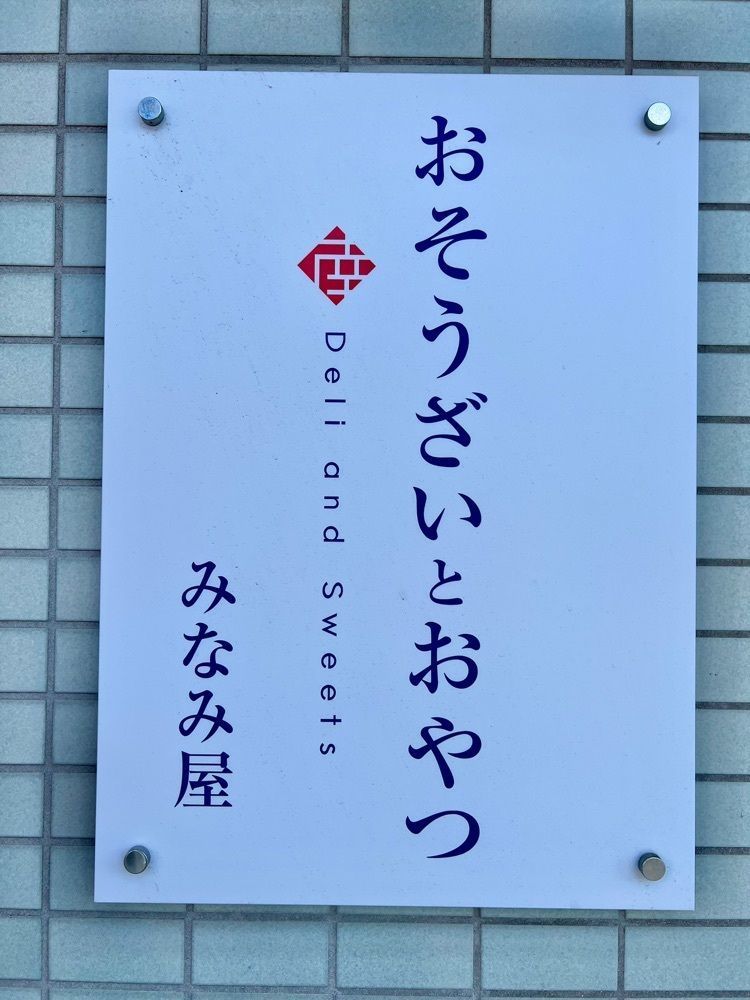 おそうざいとおやつ
Deli and Sweets
みなみ屋